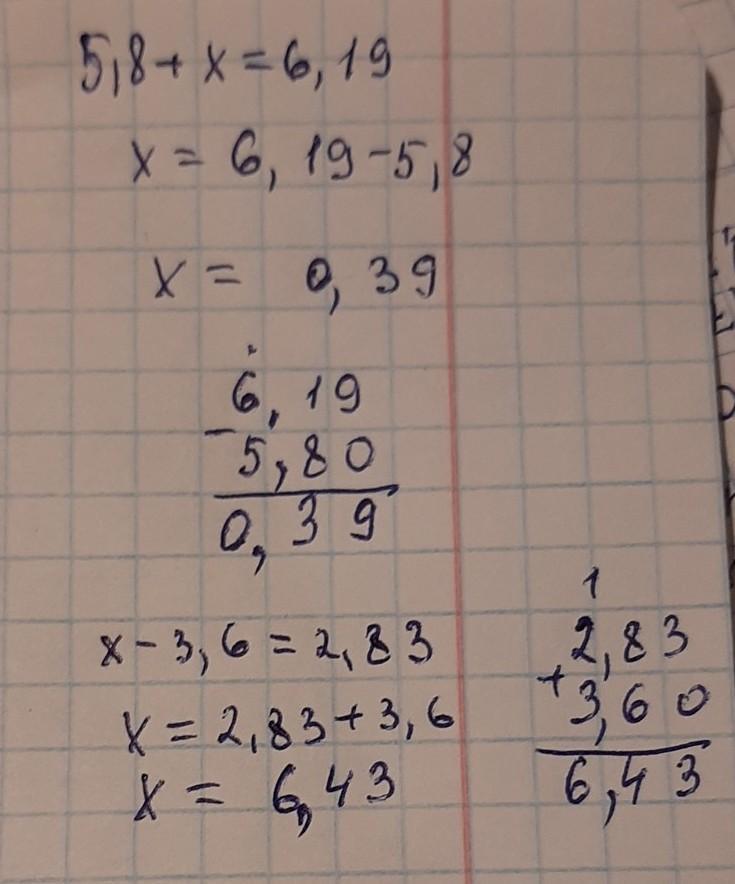 5,8 + x = 6,19
x = 6,19 - 5,8
x = 0,39
6,19
-
5,80
0,39
x - 3,6 = 2,83
x = 2,83 + 3,6
x = 6,43
1
2,83
+
3,60
6,43